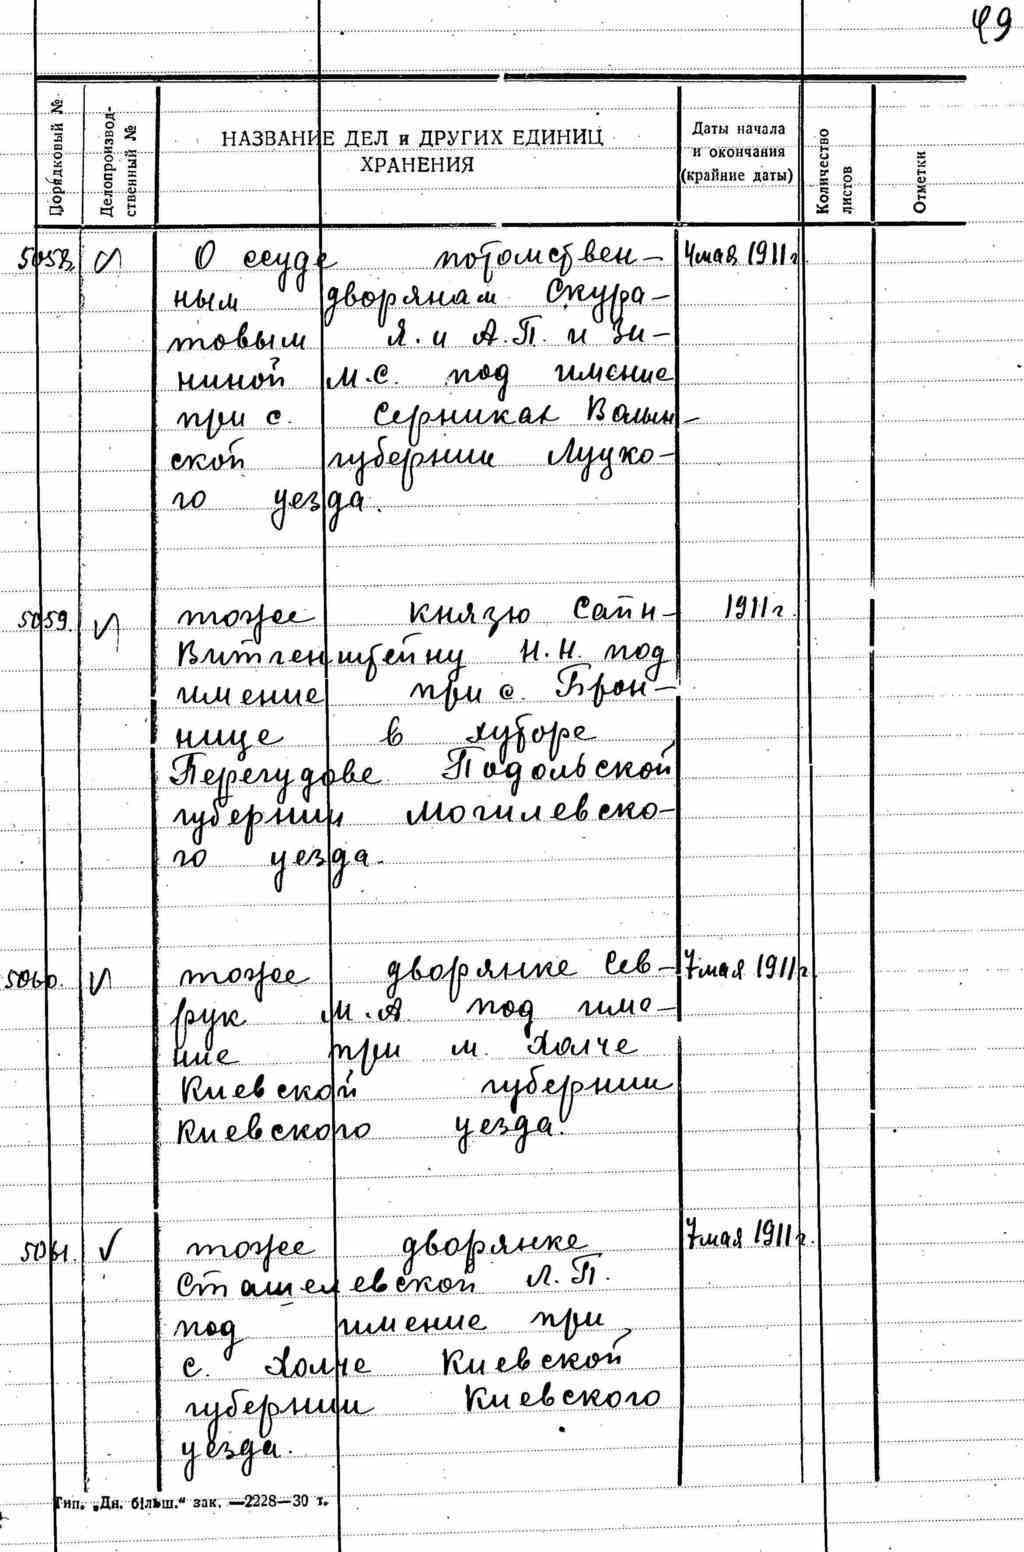 49
Порядковый №
Делопроизвод-
ственный №
НАЗВАНИЕ ДЕЛ и ДРУГИХ ЕДИНИЦ
ХРАНЕНИЯ
Даты начала
и окончания
(крайние даты)
Количество
листов
Отметки
5058. О ссуде потомствен- 4 мая 1911 г
ным дворянам Скура-
товым Я. и А.П. и Зи-
ниной М.С. под имение
при с. Серниках Волын-
ской губернии Луцко-
го уезда.
5059. тоже князю Сайн- 1911 г.
Витгенштейну Н.Н. под
имение при с. Брон-
нице в хуторе
Перегудове Подольской
губернии Могилевско-
го уезда.
5060. тоже дворянке Сев- 7 мая 1911 г
рук М.А. под име-
ние при м. Холче
Киевской губернии
Киевского уезда.
5061. ✓ тоже дворянке 7 мая 1911 г.
Сташелевской Л.П.
под имение при
с. Холче Киевской
губернии Киевского
уезда.
Тип. „Дн. більш.“ зак. —2228—30 т.